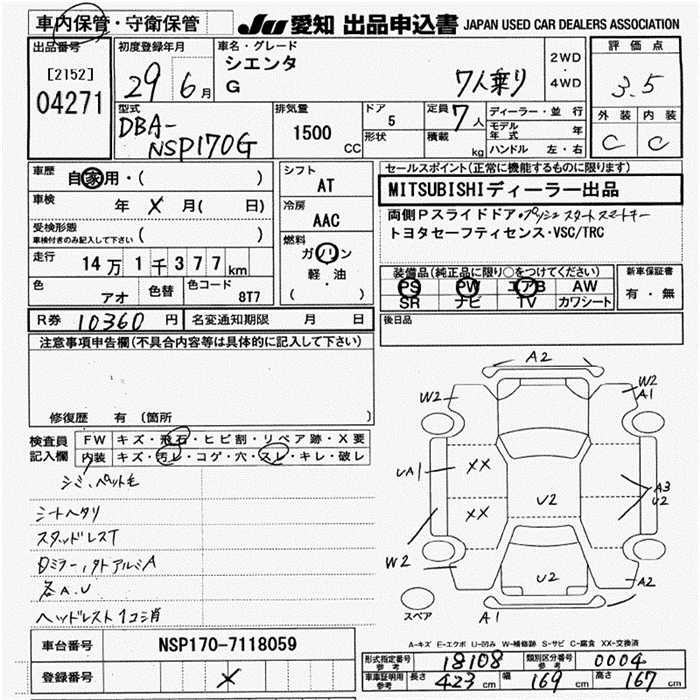 車内保管・守衛保管
JU 愛知 出品申込書 JAPAN USED CAR DEALERS ASSOCIATION
出品番号
[2152]
04271
初度登録年月
29 6月
車名・グレード
シエンタ
G 7人乗り
2WD
・
4WD
評価点
3.5
外装 内装
C C
型式
DBA-
NSP170G
排気量
1500 CC
ドア
5
形状
定員 7人
積載 kg
ディーラー・並行
モデル年式 年
ハンドル 左・右
車歴
自家用・( )
車検 年 X 月( 日)
受検形態
車検付きのみ記入して下さい ( )
走行 14万1千377km
色 アオ 色替 色コード 8T7
シフト
AT
冷房
AAC
燃料
ガソリン
軽・油
( )
セールスポイント(正常に機能するものに限ります)
MITSUBISHIディーラー出品
両側Pスライドドア・プッシュスタートスマートキー
トヨタセーフティセンス・VSC/TRC
装備品(純正品に限り○をつけてください)
PS PW エアB AW
SR ナビ TV カワシート
新車保証書
有・無
R券 10360円 名変通知期限 月 日
後日品
注意事項申告欄(不具合内容等は具体的に記入して下さい)
修復歴 有(箇所 )
検査員
記入欄
FW キズ・飛石・ヒビ割・リペア跡・X要
内装 キズ・汚レ・コゲ・穴・スレ・キレ・破レ
シミ、ペット毛
シートヘタリ
スタッドレスT
ロミラー,タトアルミA
各A.U
ヘッドレスト1コ消
A2
W2
W2
A1
UA1
XX
XX
U2
A3
U2
W2
U2
A2
A1
スペア
A-キズ E-エクボ U-凹み W-補修跡 S-サビ C-腐食 XX-交換済
車台番号 NSP170-7118059
登録番号 X
形式指定番号
参考
18108
類別区分番号
参考
0004
車庫証明用
参考
長さ 423cm 幅 169cm 高さ 167cm